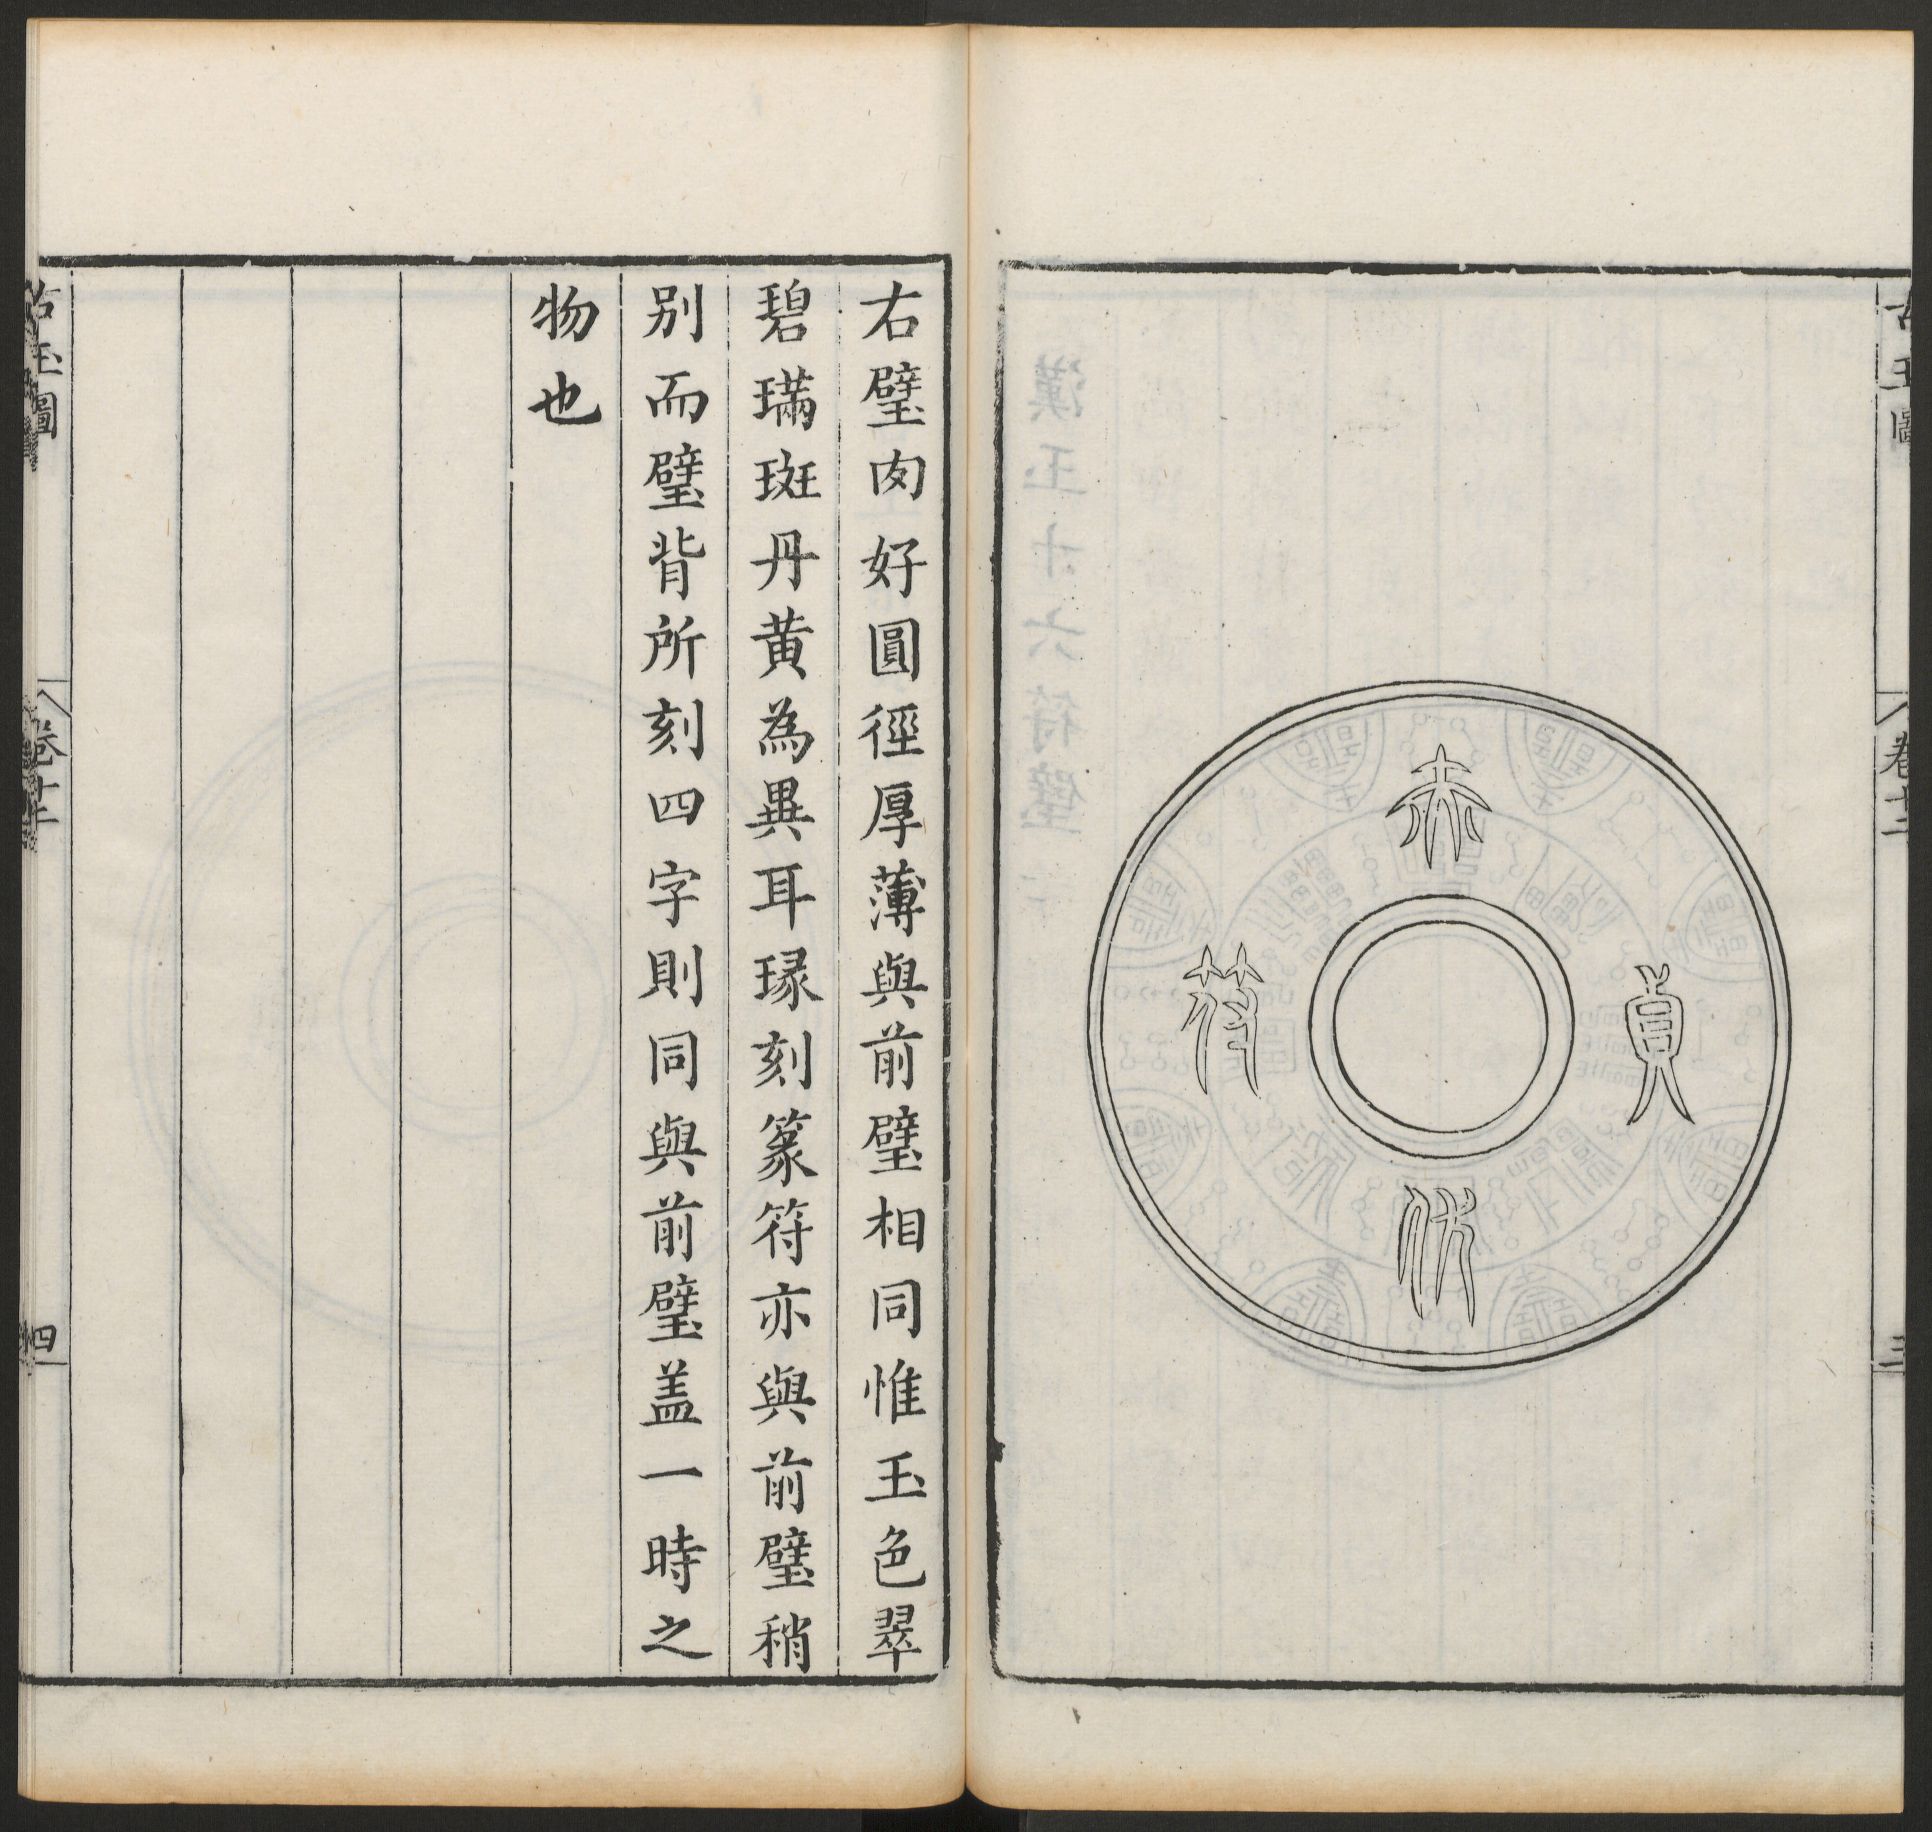 古玉圖
卷十二
三
赤
伏
貞
符
右璧肉好圓徑厚薄與前璧相同惟玉色翠
碧璊斑丹黄為異耳瑑刻篆符亦與前璧稍
别而璧背所刻四字則同與前璧蓋一時之
物也
古玉圖
卷十二
四